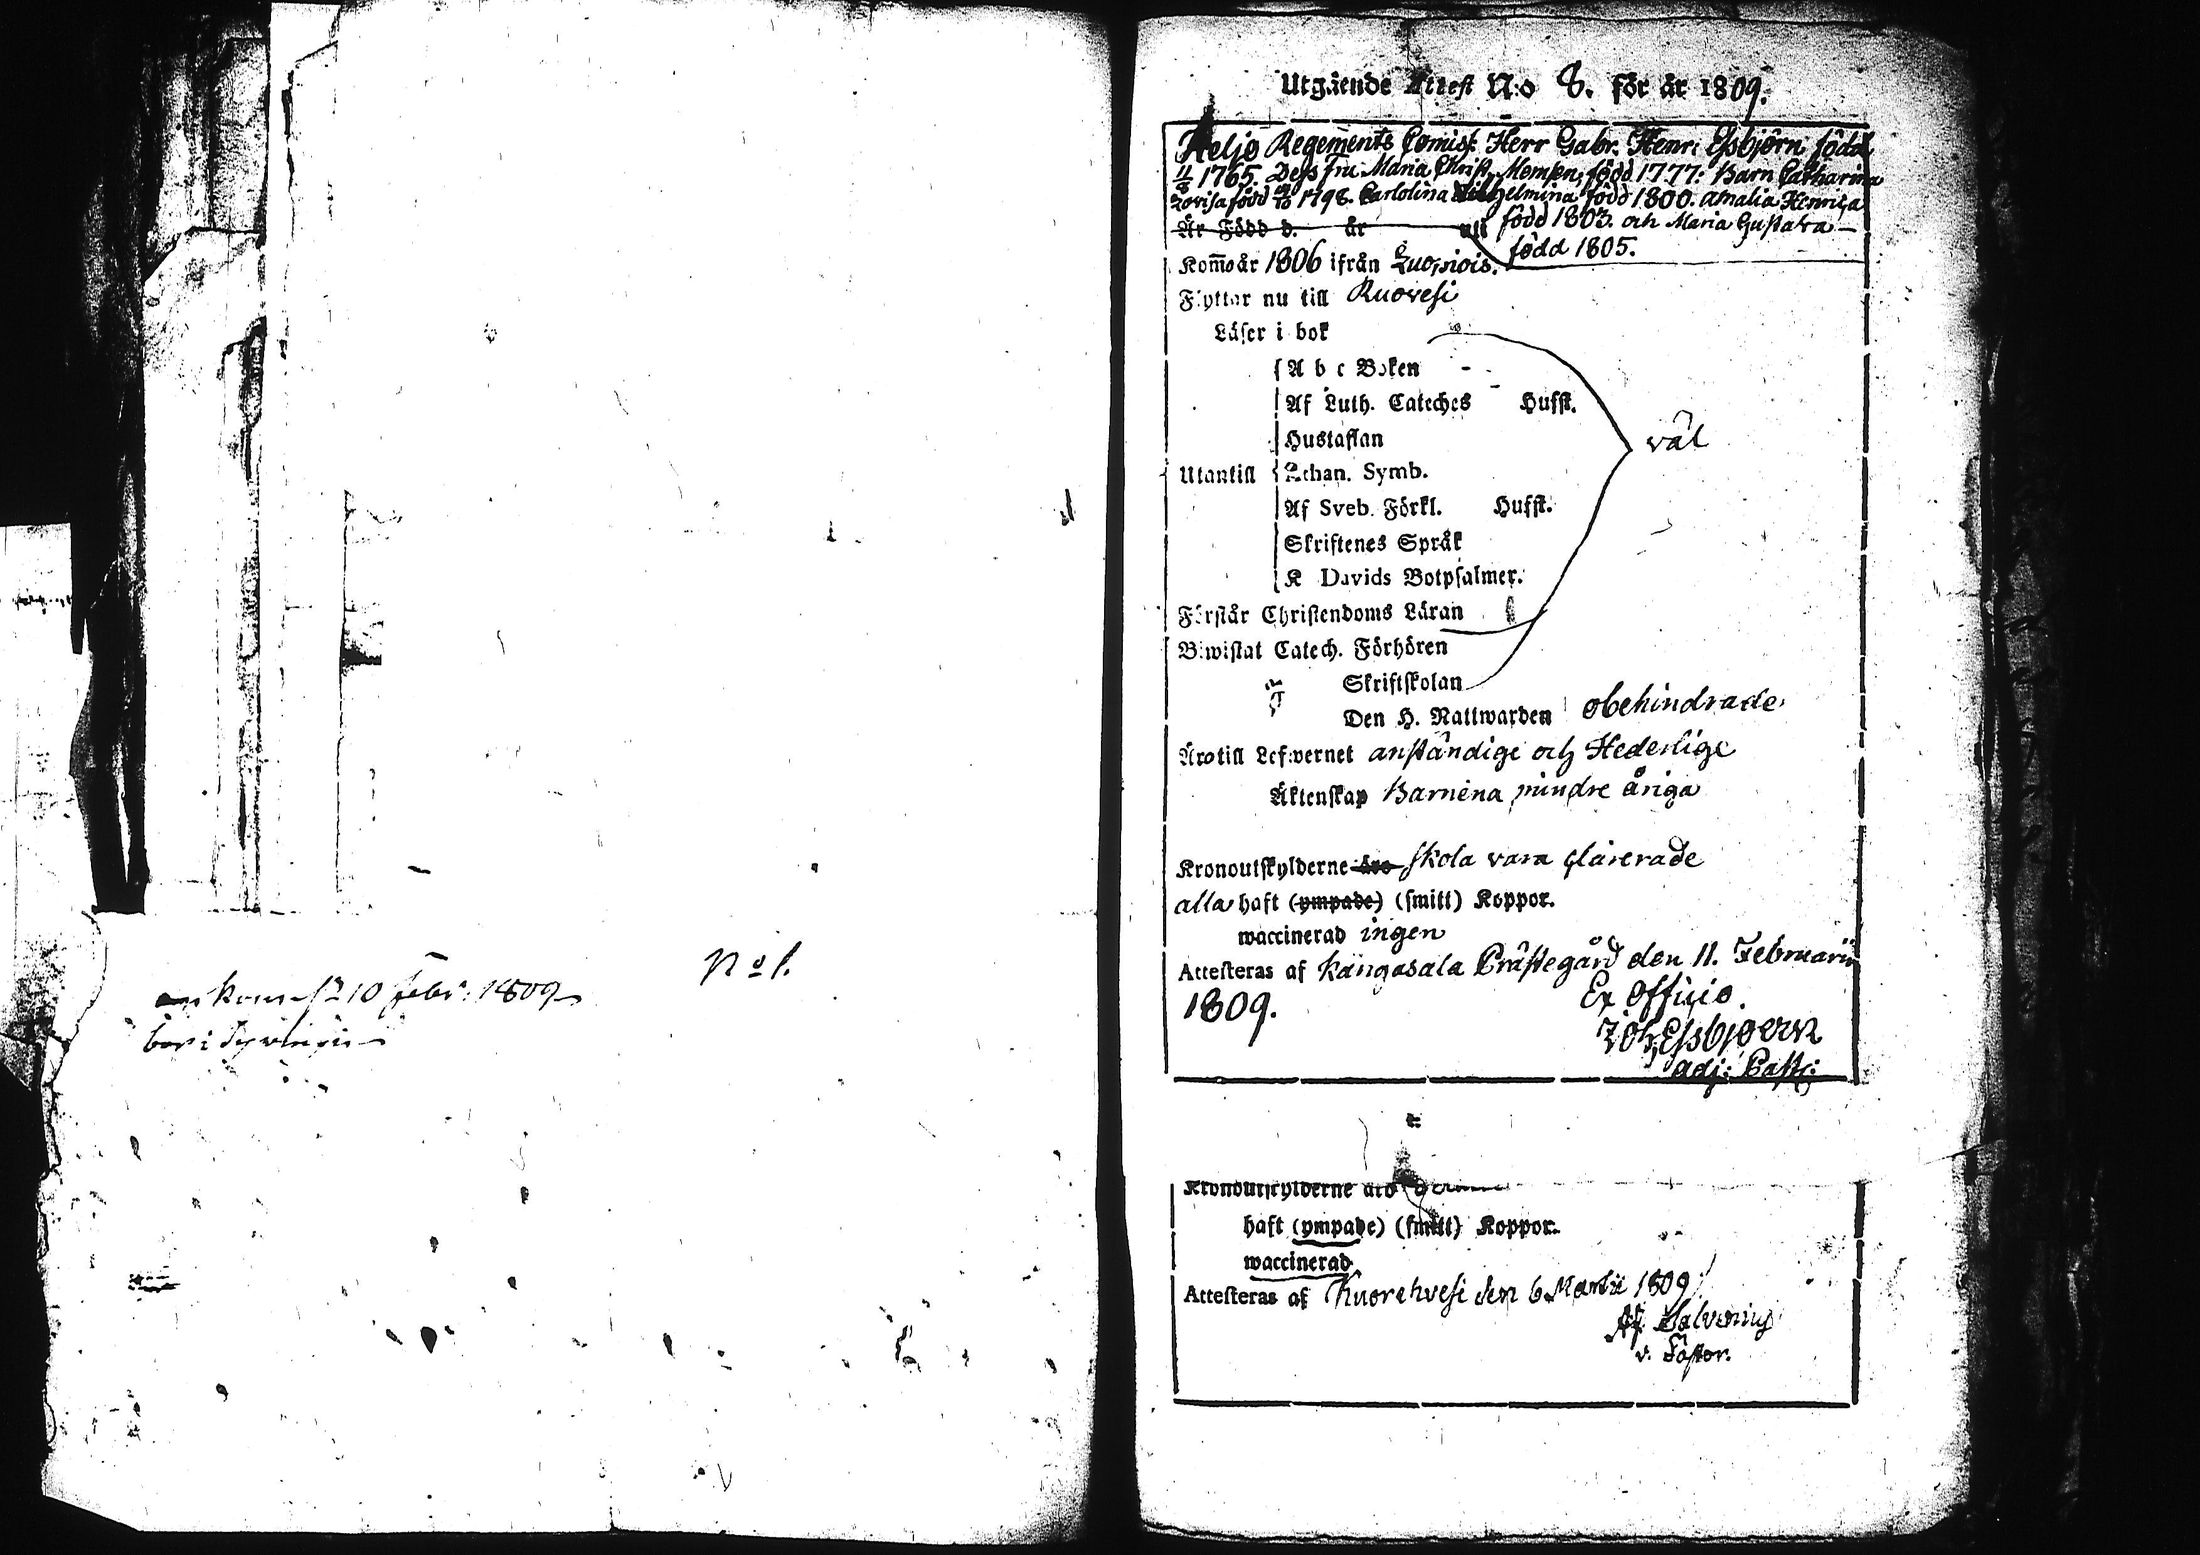 No 1.
10 Febr: 1809
bor i
Utgående Attest N:o 8. för år 1809.
Heljo Regements Comiss: Herr Gabr. Henr: Essbjörn född
11/8 1765. Dess Fru Maria Christ. född 1777: Barn Catharina
Lovisa född 1798. Carlolina Wilhelmina född 1800. Amalia Henrica
Är Född d. år uti född 1803. och Maria Gustava
född 1805.
Kom̄o år 1806 ifrån
Flyttar nu till Ruovesi
Läser i bok
A b c Boken
Af Luth. Cateches Hufst.
Hustaflan
väl
Utantill Athan. Symb.
Af Sveb. Förkl. Hufst.
Skriftenes Språk
K Davids Botpsalmer.
Förstår Christendoms Läran
Biwistat Catech. Förhören
Skriftskolan
Den H. Nattwarden obehindrade
Äro till Lefwernet anständige och Hederlige
Äktenskap Barnena mindre åriga
Kronoutskylderne äro skola vara clarerade
alla haft (ympade) (smitt) Koppor.
waccinerad ingen
Attesteras af Kangasala Prästegård den 11. Februarii
1809.
Ex Officio.
Joh, Essbjoern
adj: Past:
Kronoutskylderne äro
haft (ympade) (smitt) Koppor.
waccinerad
Attesteras af Kuorehvesi den 6 Martii 1809
Salvenius
v. Pastor.